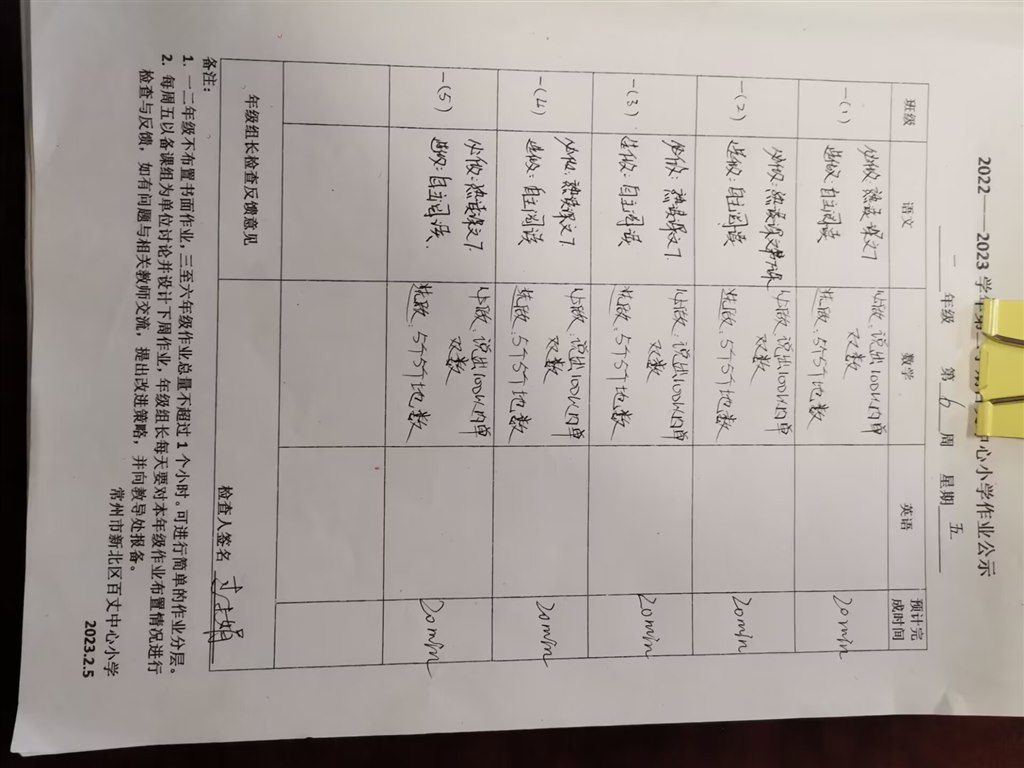 2022——2023 学年第 期 心小学作业公示
一 年级 第 6 周 星期 五
班级 语文 数学 英语 预计完成时间
一(1) 必做:熟读课文7 必做:说出100以内单双数 20min
选做:自主阅读 选做:5个5个地数
一(2) 必做:熟读课文 必做:说出100以内的单双数 20min
选做:自主阅读 选做:5个5个地数
一(3) 必做:熟读课文7. 必做:说出100以内的单双数 20min
选做:自主阅读 选做:5个5个地数
一(4) 必做:熟读课文7 必做:说出100以内的单双数 20min
选做:自主阅读 选做:5个5个地数
一(5) 必做:熟读课文7. 必做:说出100以内的单双数 20min
选做:自主阅读. 选做:5个5个地数
年级组长检查反馈意见 检查人签名
备注:
1. 一二年级不布置书面作业,三至六年级作业总量不超过 1 个小时。可进行简单的作业分层。
2. 每周五以备课组为单位讨论并设计下周作业,年级组长每天要对本年级作业布置情况进行
检查与反馈,如有问题与相关教师交流,提出改进策略,并向教导处报备。
常州市新北区百丈中心小学
2023.2.5